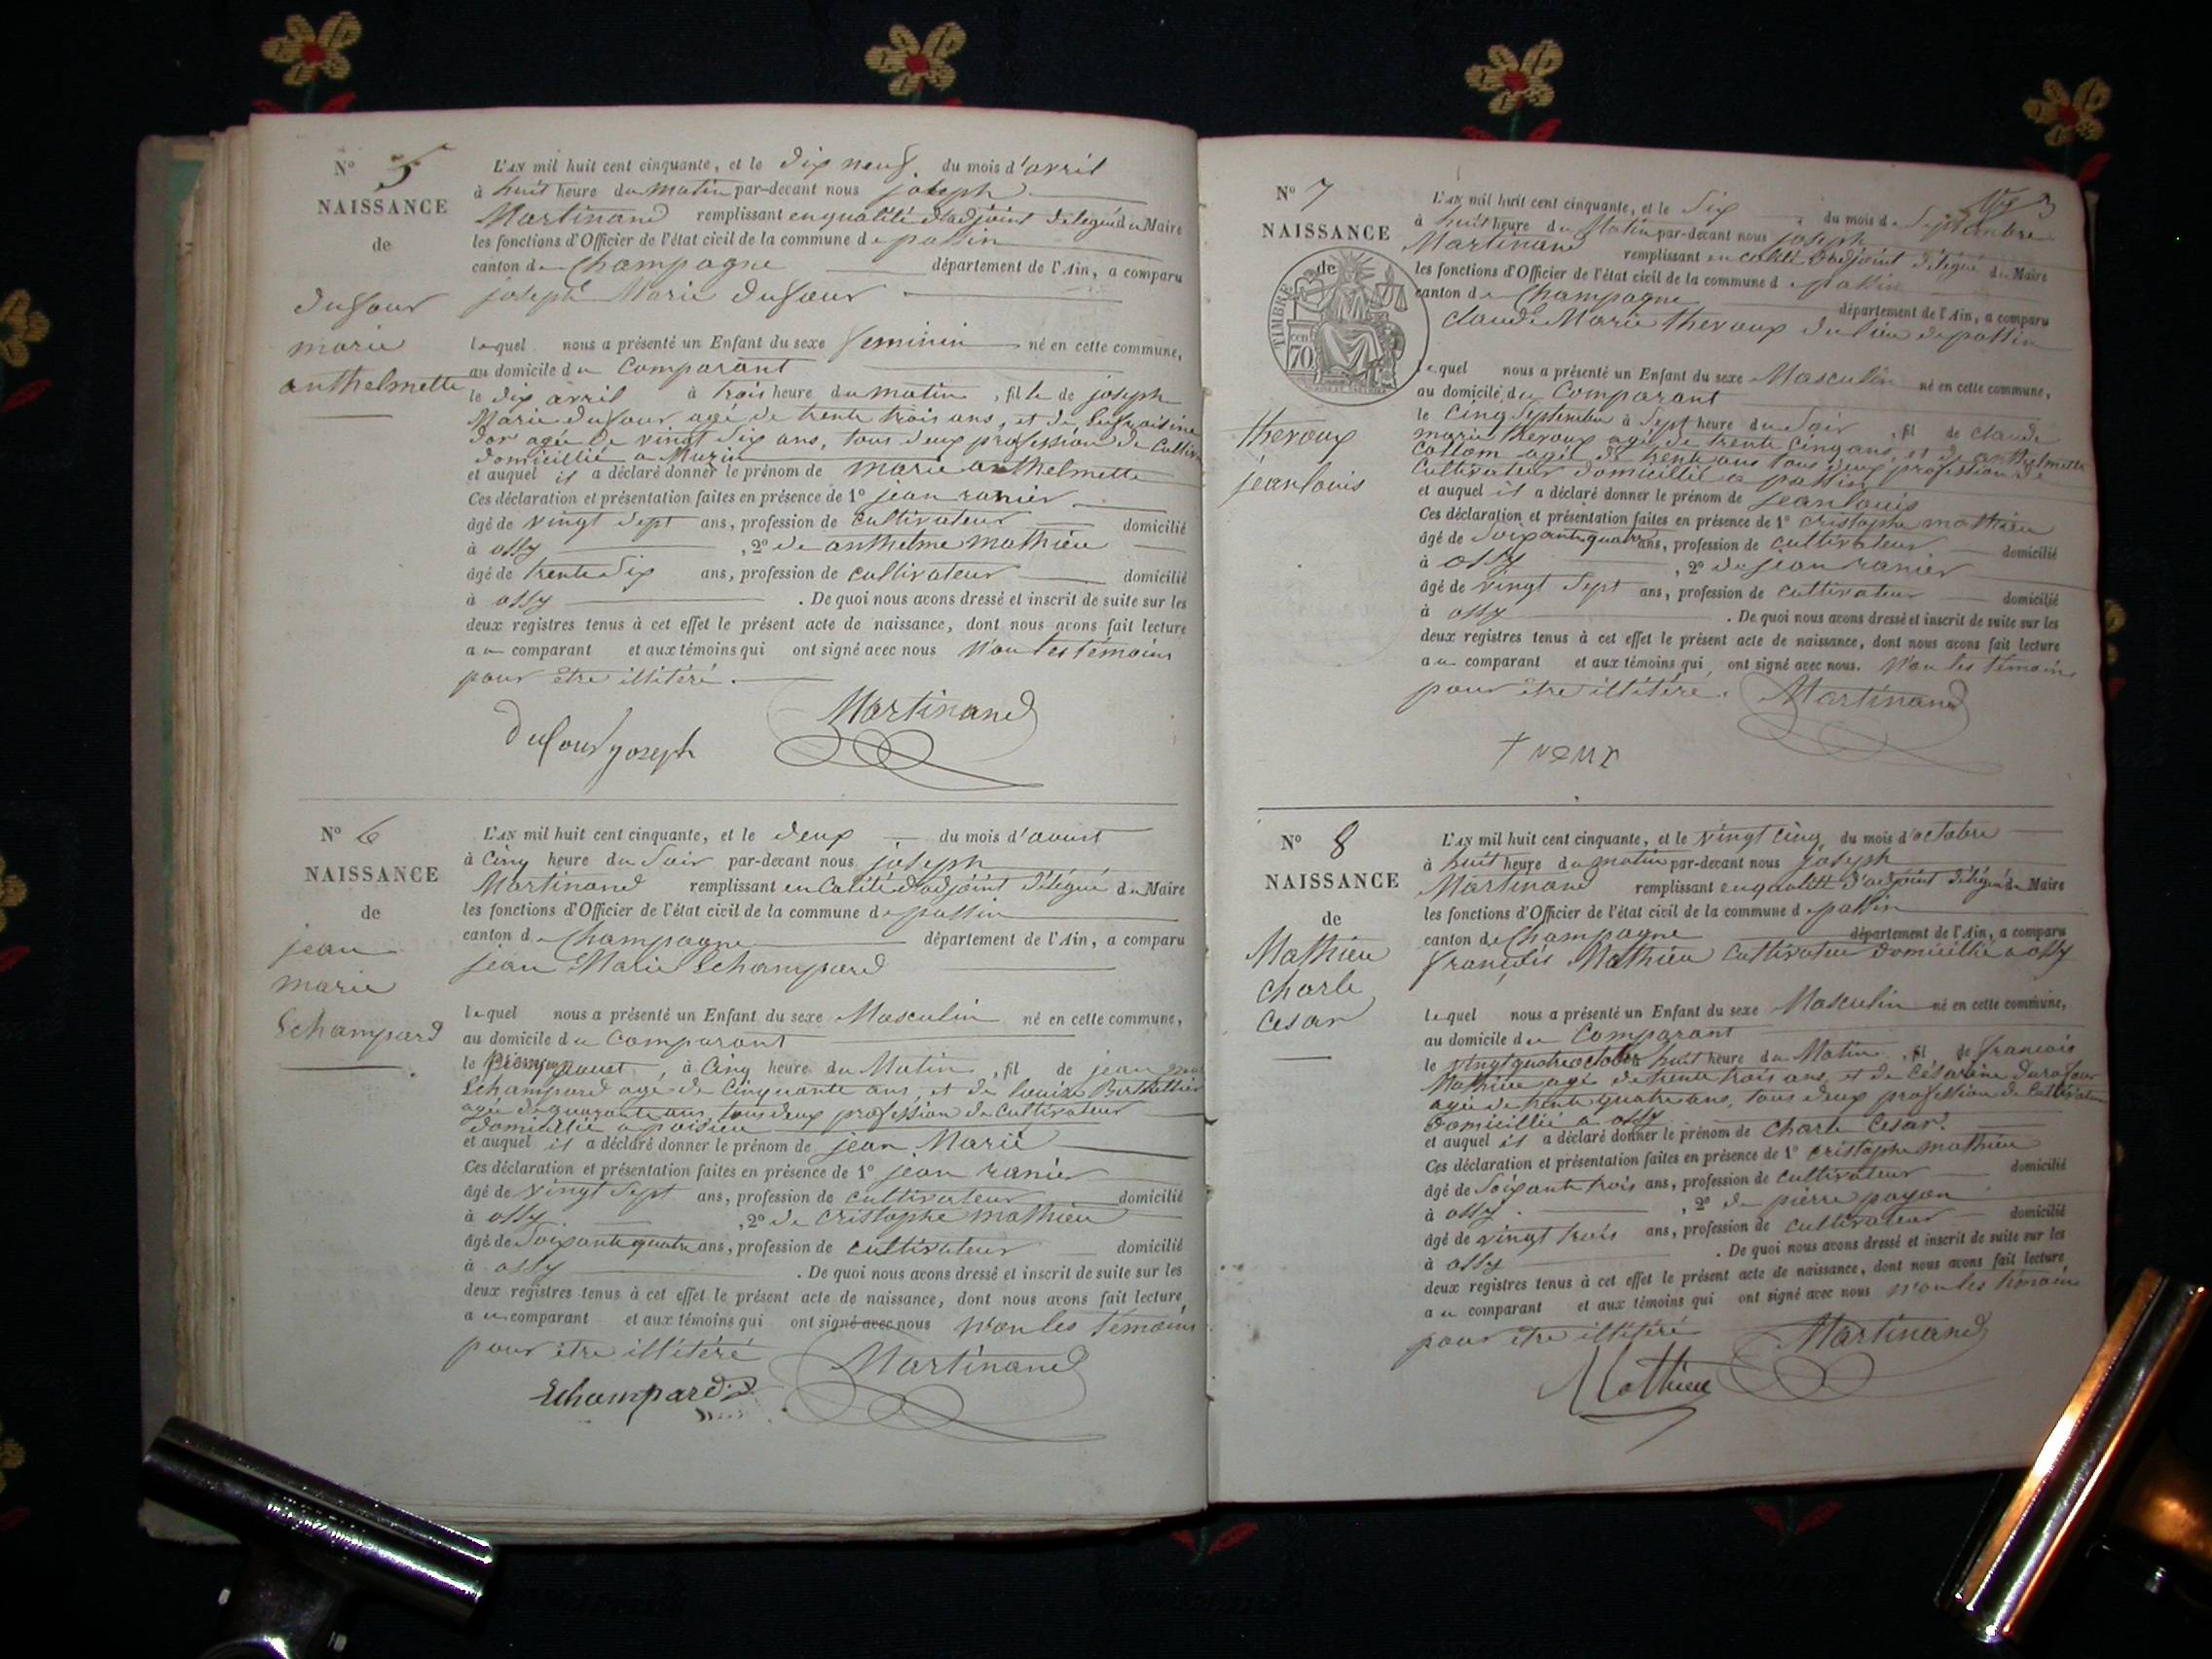 N° 5
NAISSANCE
de
dufour
marie
anthelmette
L'AN mil huit cent cinquante, et le dix neuf du mois d'avril
à huit heure du matin par-devant nous joseph
Martinand remplissant en qualité d'adjoint délégué du Maire
les fonctions d'Officier de l'état civil de la commune de passin
canton de Champagne département de l'Ain, a comparu
joseph Marie dufour
lequel nous a présenté un Enfant du sexe feminin né en cette commune,
au domicile du Comparant
le dix avril à trois heure du matin, fille de joseph
Marie dufour agé de trente trois ans, et de
dor agée de vingt six ans, tous deux profession de Cultiv
domicillié a Muzin
et auquel il a déclaré donner le prénom de marie anthelmette
Ces déclaration et présentation faites en présence de 1° jean ranier
âgé de vingt sept ans, profession de cultivateur domicilié
à ossy, 2° de anthelme mathieu
âgé de trente six ans, profession de cultivateur domicilié
à ossy. De quoi nous avons dressé et inscrit de suite sur les
deux registres tenus à cet effet le présent acte de naissance, dont nous avons fait lecture
au comparant et aux témoins qui ont signé avec nous n'on les témoins
pour être illitéré.
Martinand
Dufour joseph
N° 6
NAISSANCE
de
jean
marie
Echampard
L'AN mil huit cent cinquante, et le deux du mois d'aoust
à Cinq heure du Soir par-devant nous joseph
Martinand remplissant en Calité d'adjoint délégué du Maire
les fonctions d'Officier de l'état civil de la commune de passin
canton de Champagne département de l'Ain, a comparu
jean Marie Echampard
lequel nous a présenté un Enfant du sexe Masculin né en cette commune,
au domicile du Comparant
le aoust, à Cinq heure du Matin, fil de jean
Echampard age de Cinquante ans, et de louise Berthelier
agée de quarante ans, tous deux profession de Cultivateur
domicillié a poisieu
et auquel il a déclaré donner le prénom de jean Marie
Ces déclaration et présentation faites en présence de 1° jean ranier
âgé de vingt sept ans, profession de cultivateur domicilié
à ossy, 2° de cristophe mathieu
âgé de Soixante quatre ans, profession de cultivateur domicilié
à ossy. De quoi nous avons dressé et inscrit de suite sur les
deux registres tenus à cet effet le présent acte de naissance, dont nous avons fait lecture
au comparant et aux témoins qui ont signé avec nous n'on les témoins
pour être illitéré
Martinand
Echampard
N° 7
NAISSANCE
de
TIMBRE
70 cen
theroux
jean louis
L'AN mil huit cent cinquante, et le Six du mois de Septembre
à huit heure du Matin par-devant nous joseph
Martinand remplissant en calité d'adjoint délégué du Maire
les fonctions d'Officier de l'état civil de la commune de passin
canton de Champagne département de l'Ain, a comparu
claude Marie theroux du lieu de passin
lequel nous a présenté un Enfant du sexe Masculin né en cette commune,
au domicile du Comparant
le Cinq Septembre à Sept heure du Soir, fil de claude
marie theroux agé de trente Cinq ans, et de anthelmette
Cottom agée de trente ans tous deux profession de
Cultivateur domicillié a passin
et auquel il a déclaré donner le prénom de jean louis
Ces déclaration et présentation faites en présence de 1° cristophe mathieu
âgé de Soixante quatre ans, profession de cultivateur domicilié
à ossy, 2° de jean ranier
âgé de vingt sept ans, profession de cultivateur domicilié
à ossy. De quoi nous avons dressé et inscrit de suite sur les
deux registres tenus à cet effet le présent acte de naissance, dont nous avons fait lecture
au comparant et aux témoins qui ont signé avec nous. n'on les témoins
pour être illitéré.
Martinand
N° 8
NAISSANCE
de
Mathieu
Charle
Cesar
L'AN mil huit cent cinquante, et le vingt cinq du mois d'octobre
à huit heure du matin par-devant nous joseph
Martinand remplissant en qualitté d'adjoint délégué du Maire
les fonctions d'Officier de l'état civil de la commune de passin
canton de Champagne département de l'Ain, a comparu
françois Mathieu Cultivateur domicillié a ossy
lequel nous a présenté un Enfant du sexe Masculin né en cette commune,
au domicile du Comparant
le vingt quatre octobre huit heure du Matin, fil de francois
Mathieu agé de trente trois ans, et de Césarine
agée de trente quatre ans, tous deux profession de Cultivateur
Domicillié a ossy
et auquel il a déclaré donner le prénom de Charle Cesar.
Ces déclaration et présentation faites en présence de 1° cristophe mathieu
âgé de Soixante trois ans, profession de cultivateur domicilié
à ossy, 2° de pierre payan
âgé de vingt trois ans, profession de cultivateur domicilié
à ossy. De quoi nous avons dressé et inscrit de suite sur les
deux registres tenus à cet effet le présent acte de naissance, dont nous avons fait lecture
au comparant et aux témoins qui ont signé avec nous n'on les témoins
pour être illitéré
Martinand
Mathieu